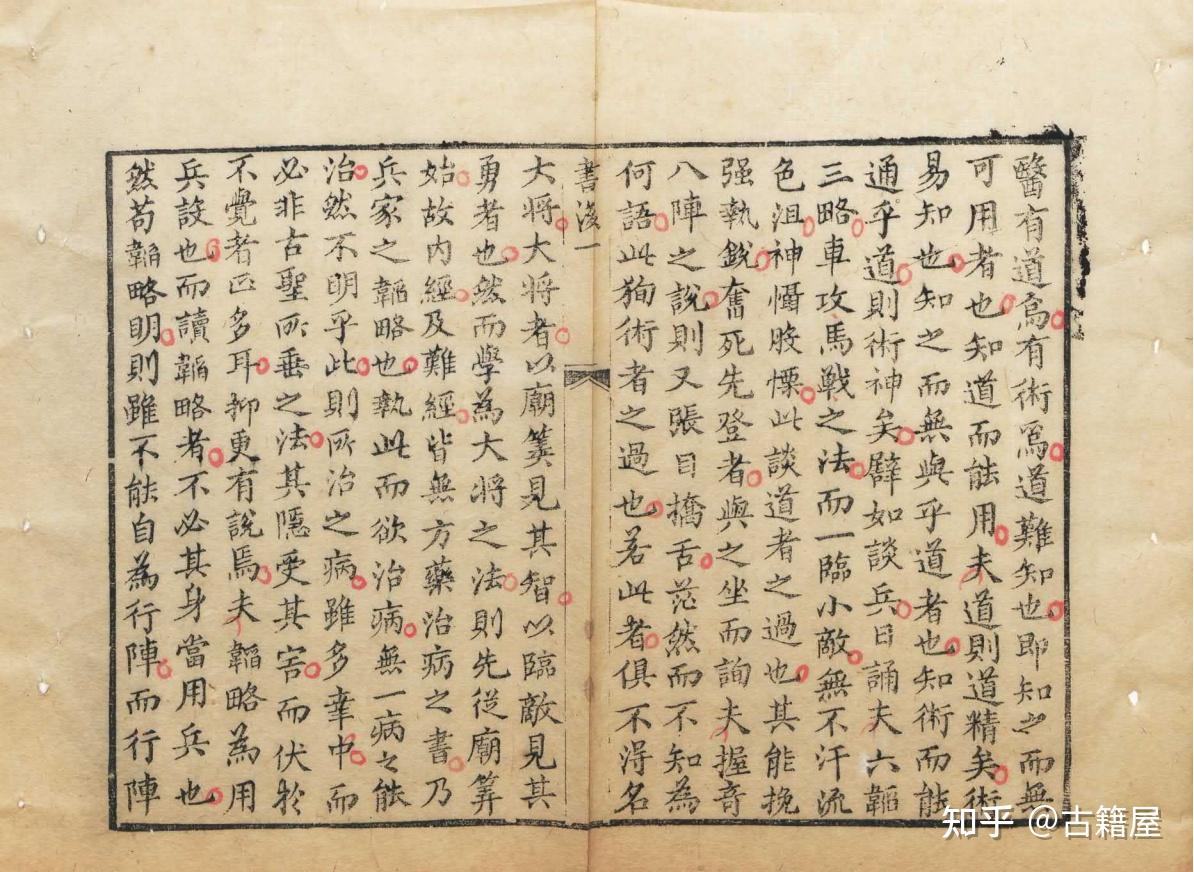 醫有道焉有術焉道難知也即知之而無
可用者也知道而能用夫道則道精矣術
易知也知之而無與乎道者也知術而能
通乎道則術神矣譬如談兵日誦夫六韜
三略車攻馬戰之法而一臨小敵無不汗流
色沮神慴股慄此談道者之過也其能挽
强執銳奮死先登者與之坐而詢夫握奇
八陣之說則又張目撟舌茫然而不知為
何語此狥術者之過也若此者俱不淂名
書後一
大将大将者以廟筭見其智以臨敵見其
勇者也然而學為大将之法則先從廟筭
始故内經及難經皆無方藥治病之書乃
兵家之韜略也執此而欲治病無一病之能
治然不明乎此則所治之病雖多幸中而
必非古聖所垂之法其隱受其害而伏於
不覺者正多耳抑更有說焉夫韜略為用
兵設也而讀韜略者不必其身當用兵也
然苟韜略明則雖不能自為行陣而行陣
知乎 @古籍屋